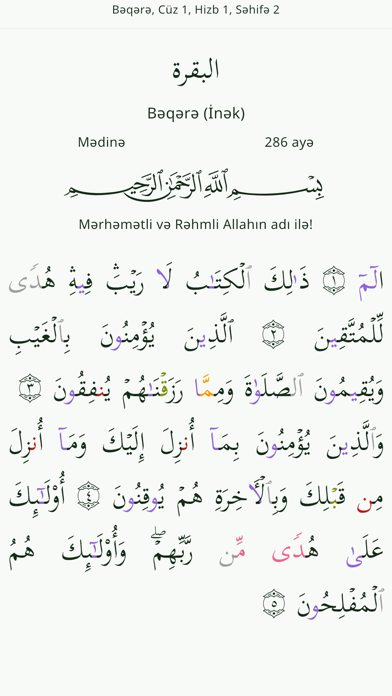 Bəqərə, Cüz 1, Hizb 1, Səhifə 2
البقرة
Bəqərə (İnək)
Mədinə 286 ayə
بِسْمِ ٱللَّهِ ٱلرَّحْمَٰنِ ٱلرَّحِيمِ
Mərhəmətli və Rəhmli Allahın adı ilə!
الٓمٓ ۝١ ذَٰلِكَ ٱلْكِتَـٰبُ لَا رَيْبَ ۛ فِيهِ ۛ هُدًى
لِّلْمُتَّقِينَ ۝٢ ٱلَّذِينَ يُؤْمِنُونَ بِٱلْغَيْبِ
وَيُقِيمُونَ ٱلصَّلَوٰةَ وَمِمَّا رَزَقْنَـٰهُمْ يُنفِقُونَ ۝٣
وَٱلَّذِينَ يُؤْمِنُونَ بِمَآ أُنزِلَ إِلَيْكَ وَمَآ أُنزِلَ
مِن قَبْلِكَ وَبِٱلْـَٔاخِرَةِ هُمْ يُوقِنُونَ ۝٤ أُوْلَـٰٓئِكَ
عَلَىٰ هُدًى مِّن رَّبِّهِمْ ۖ وَأُوْلَـٰٓئِكَ هُمُ
ٱلْمُفْلِحُونَ ۝٥